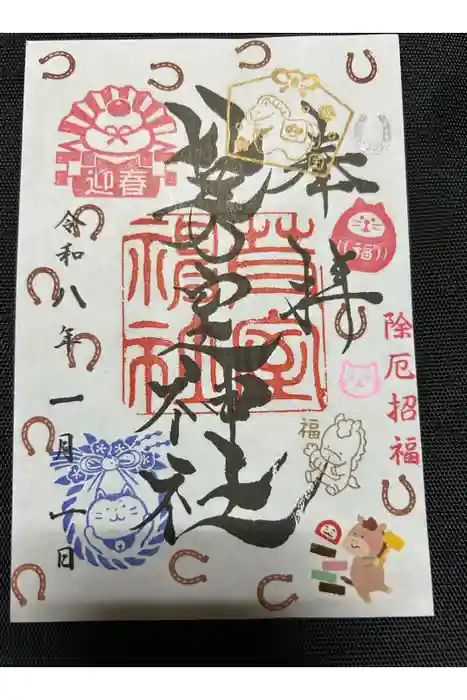 奉拝
神社
迎春
福
除厄招福
福
令和八年 一月 一日